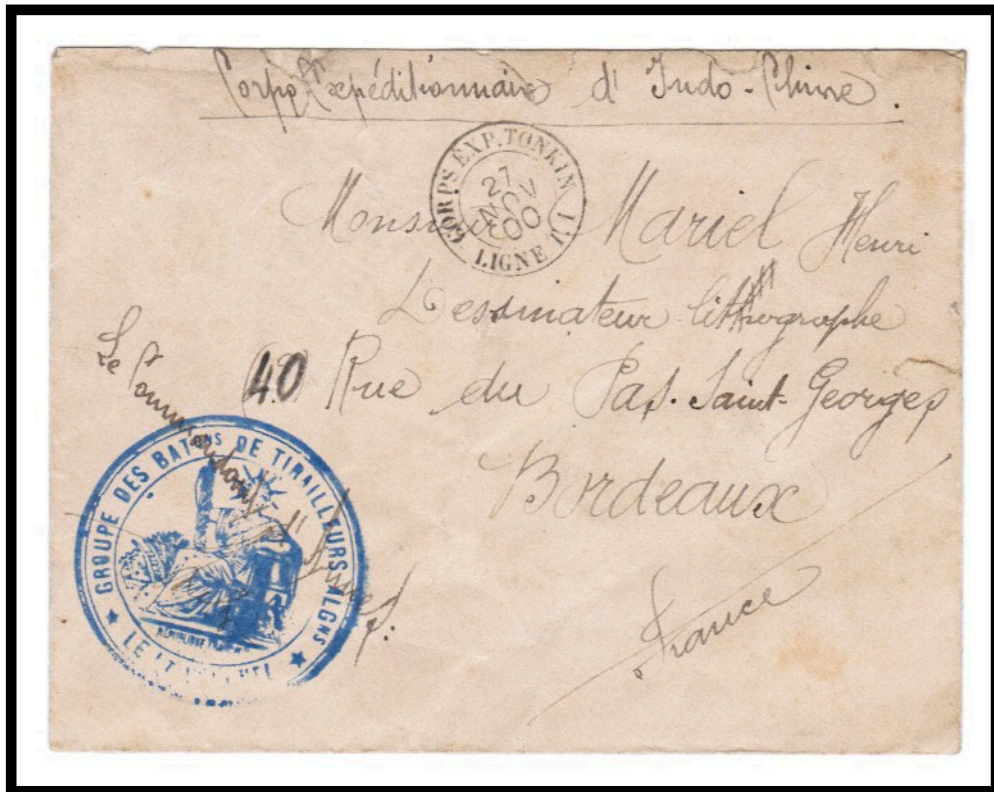 Corps Expéditionnaire d'Indo-Chine.
CORPS EXP. TONKIN
27
NOV
00
LIGNE
Monsieur Mariel Henri
Dessinateur lithographe
40 Rue du Pas-Saint-Georges
Bordeaux
France
Le Commandant d'Armes
GROUPE DES BATONS DE TIRAILLEURS ALGNS
REPUBLIQUE
LE LT